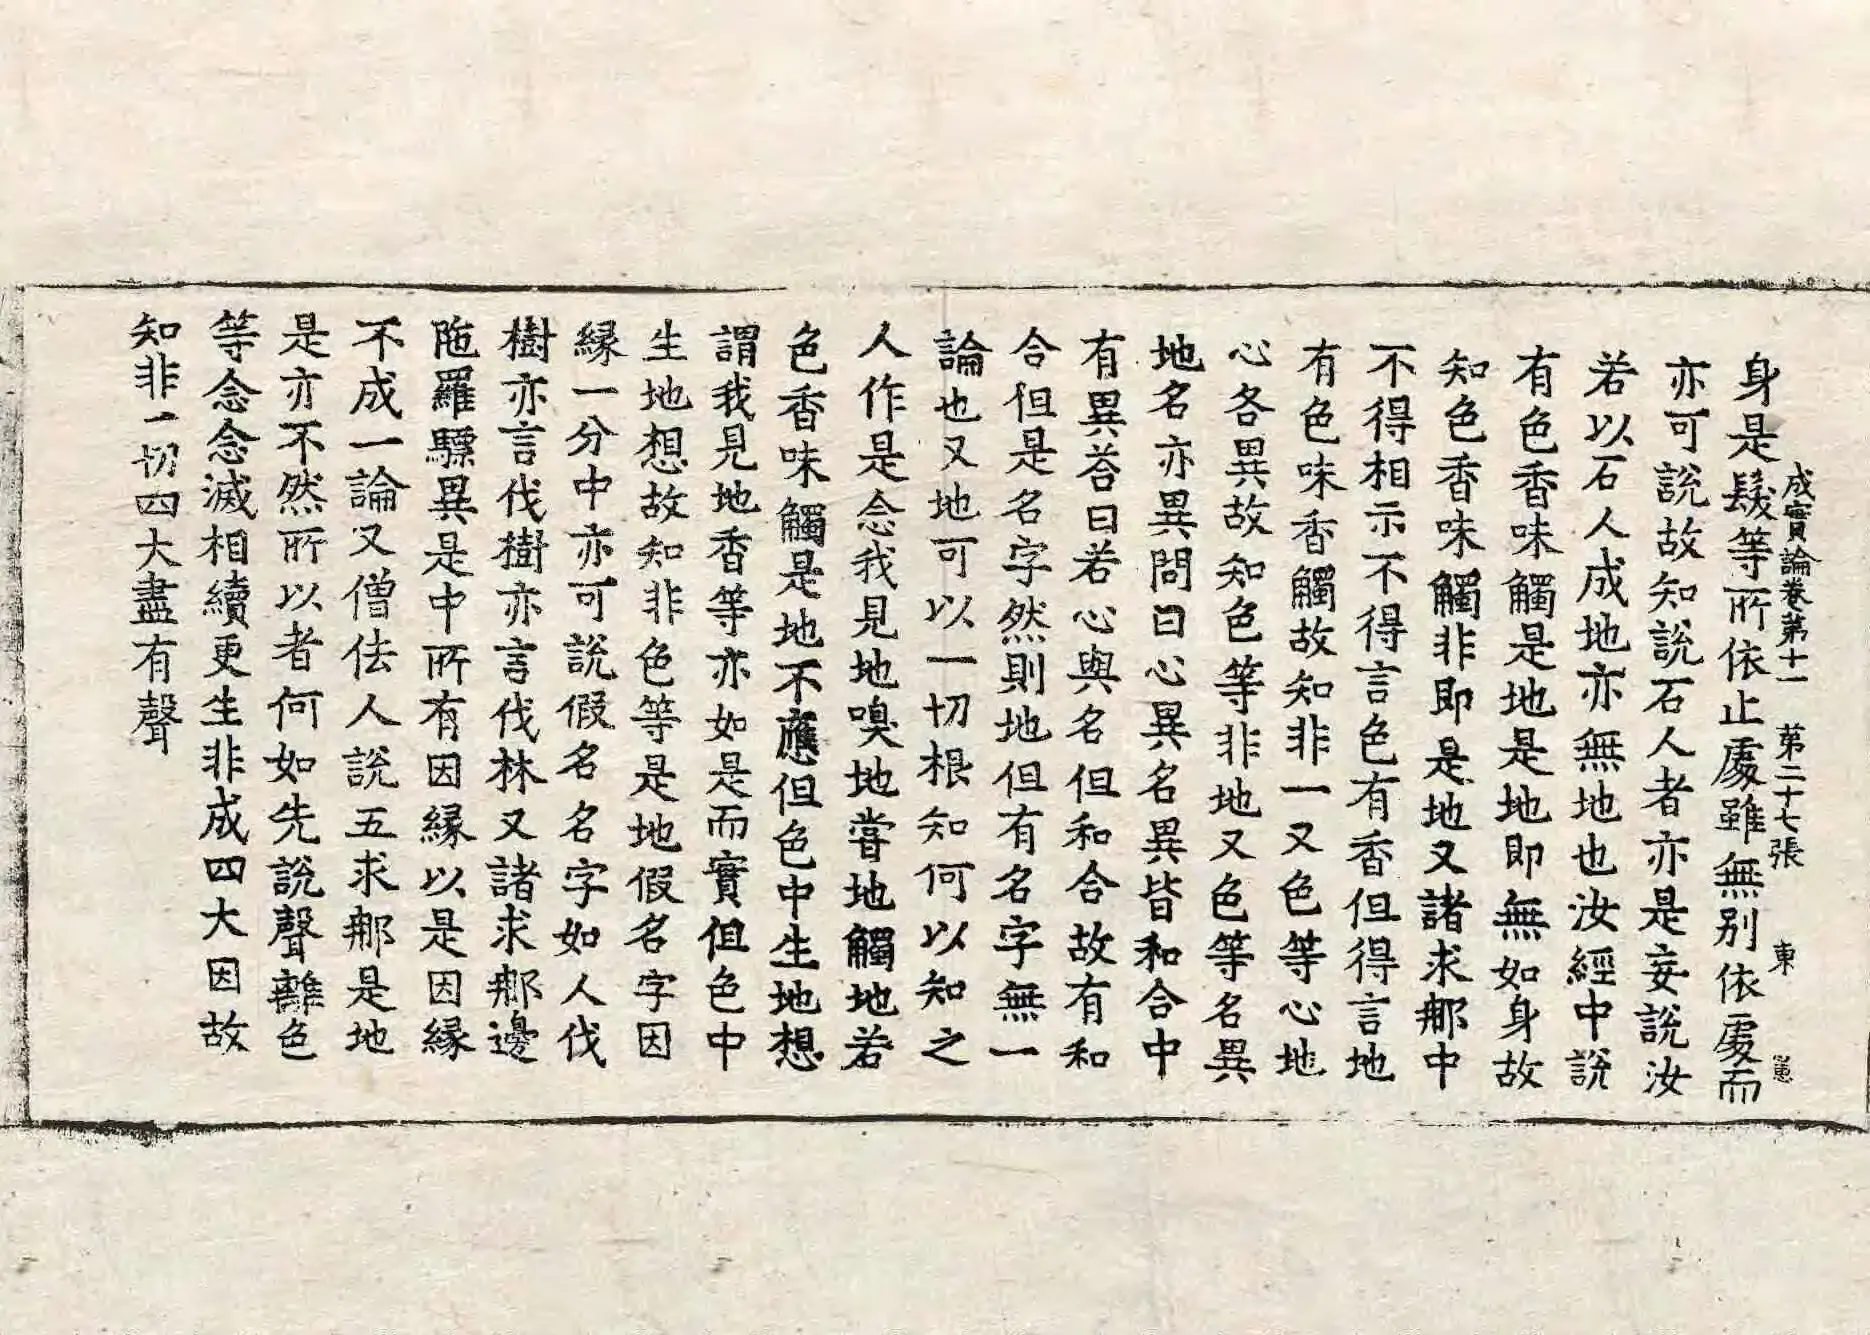 成實論卷第十一　第二十七張　東
身是髮等所依止處雖無別依處而
亦可說故知說石人者亦是妄說汝
若以石人成地亦無地也汝經中說
有色香味觸是地是地即無如身故
知色香味觸非即是地又諸求那中
不得相示不得言色有香但得言地
有色味香觸故知非一又色等心地
心各異故知色等非地又色等名異
地名亦異問曰心異名異皆和合中
有異荅曰若心與名但和合故有和
合但是名字然則地但有名字無一
論也又地可以一切根知何以知之
人作是念我見地嗅地甞地觸地若
色香味觸是地不應但色中生地想
謂我見地香等亦如是而實但色中
生地想故知非色等是地假名字因
縁一分中亦可說假名名字如人伐
樹亦言伐樹亦言伐林又諸求那邊
陁羅驃異是中所有因縁以是因縁
不成一論又僧佉人說五求那是地
是亦不然所以者何如先說聲離色
等念念滅相續更生非成四大因故
知非一切四大盡有聲